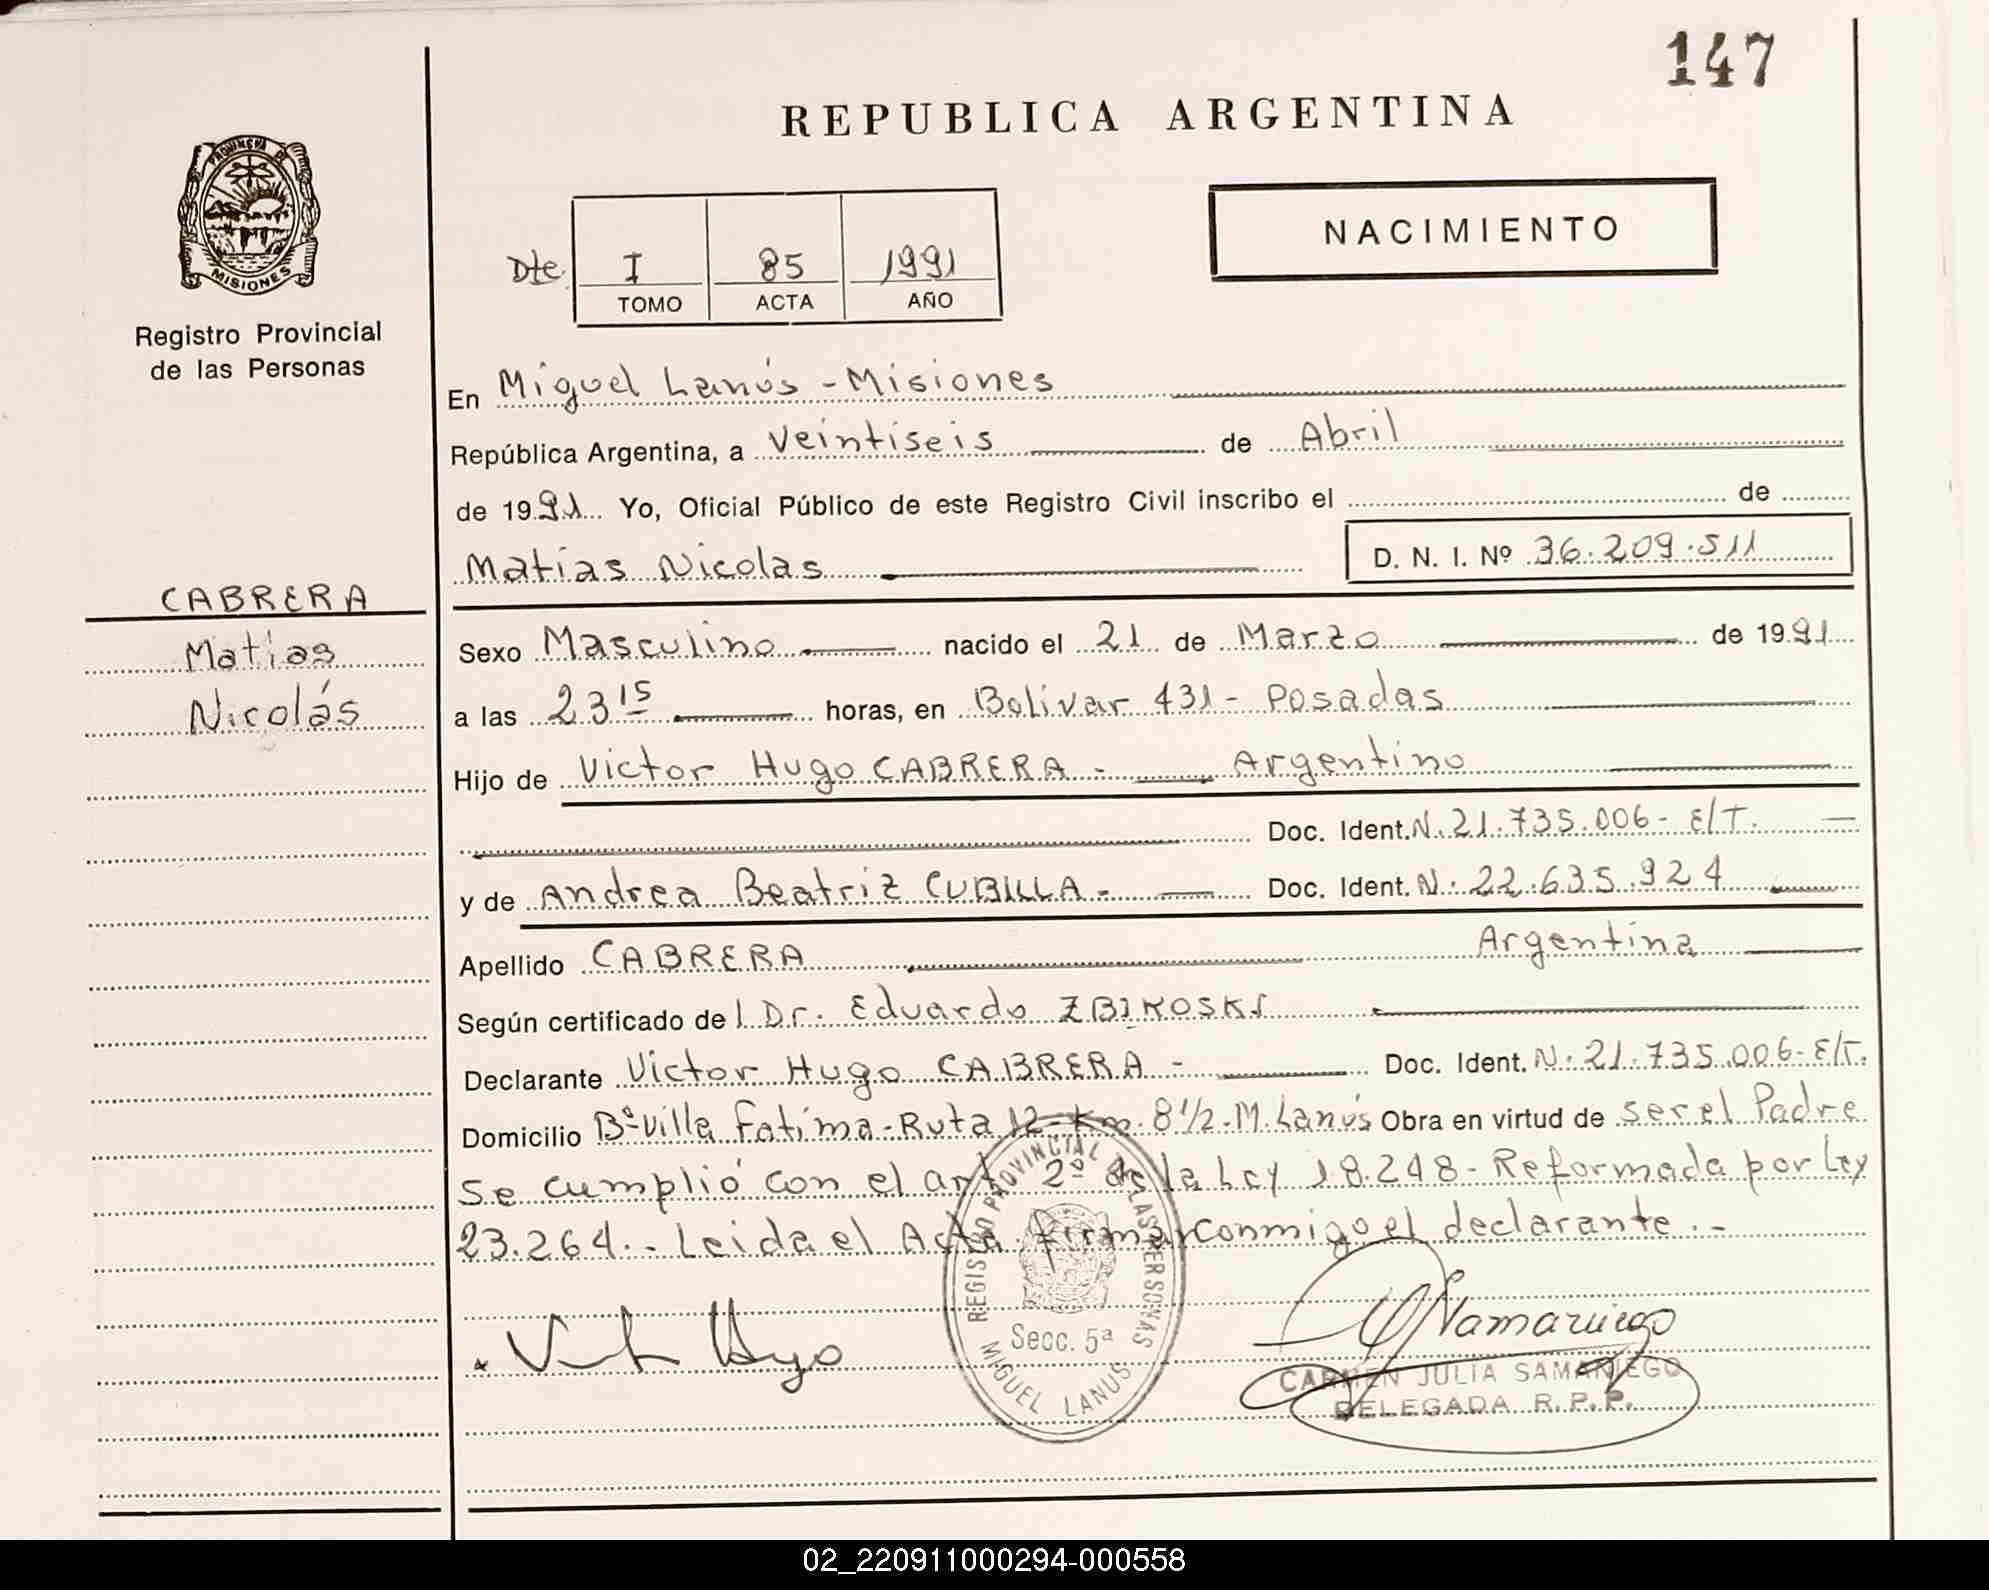 147
REPUBLICA ARGENTINA
PROVINCIA DE
MISIONES
Registro Provincial
de las Personas
NACIMIENTO
Dte. I 85 1991
TOMO ACTA AÑO
En Miguel Lanús - Misiones
República Argentina, a Veintiseis de Abril
de 1991 Yo, Oficial Público de este Registro Civil inscribo el de
Matías Nicolas D. N. I. Nº 36.209.511
CABRERA
Matias
Nicolás
Sexo Masculino nacido el 21 de Marzo de 1991
a las 23 15 horas, en Bolivar 431 - Posadas
Hijo de Victor Hugo CABRERA - Argentino
Doc. Ident. N. 21.735.006 - E/T. -
y de Andrea Beatriz CUBILLA - Doc. Ident. N. 22.635.924
Apellido CABRERA Argentina
Según certificado de l Dr. Eduardo ZBIKOSKI
Declarante Victor Hugo CABRERA - Doc. Ident. N. 21.735.006 - E/T.
Domicilio Bº Villa Fatima - Ruta 12 - Km. 8 1/2 - M. Lanús Obra en virtud de ser el Padre
se cumplió con el art. 2º de la Ley 18.248 - Reformada por Ley
23.264. - Leida el Acta firmar conmigo el declarante. -
REGISTRO PROVINCIAL DE LAS PERSONAS
Secc. 5ª
MIGUEL LANUS
Victor Hugo
Samaniego
CARMEN JULIA SAMANIEGO
DELEGADA R.P.P.
02_220911000294-000558